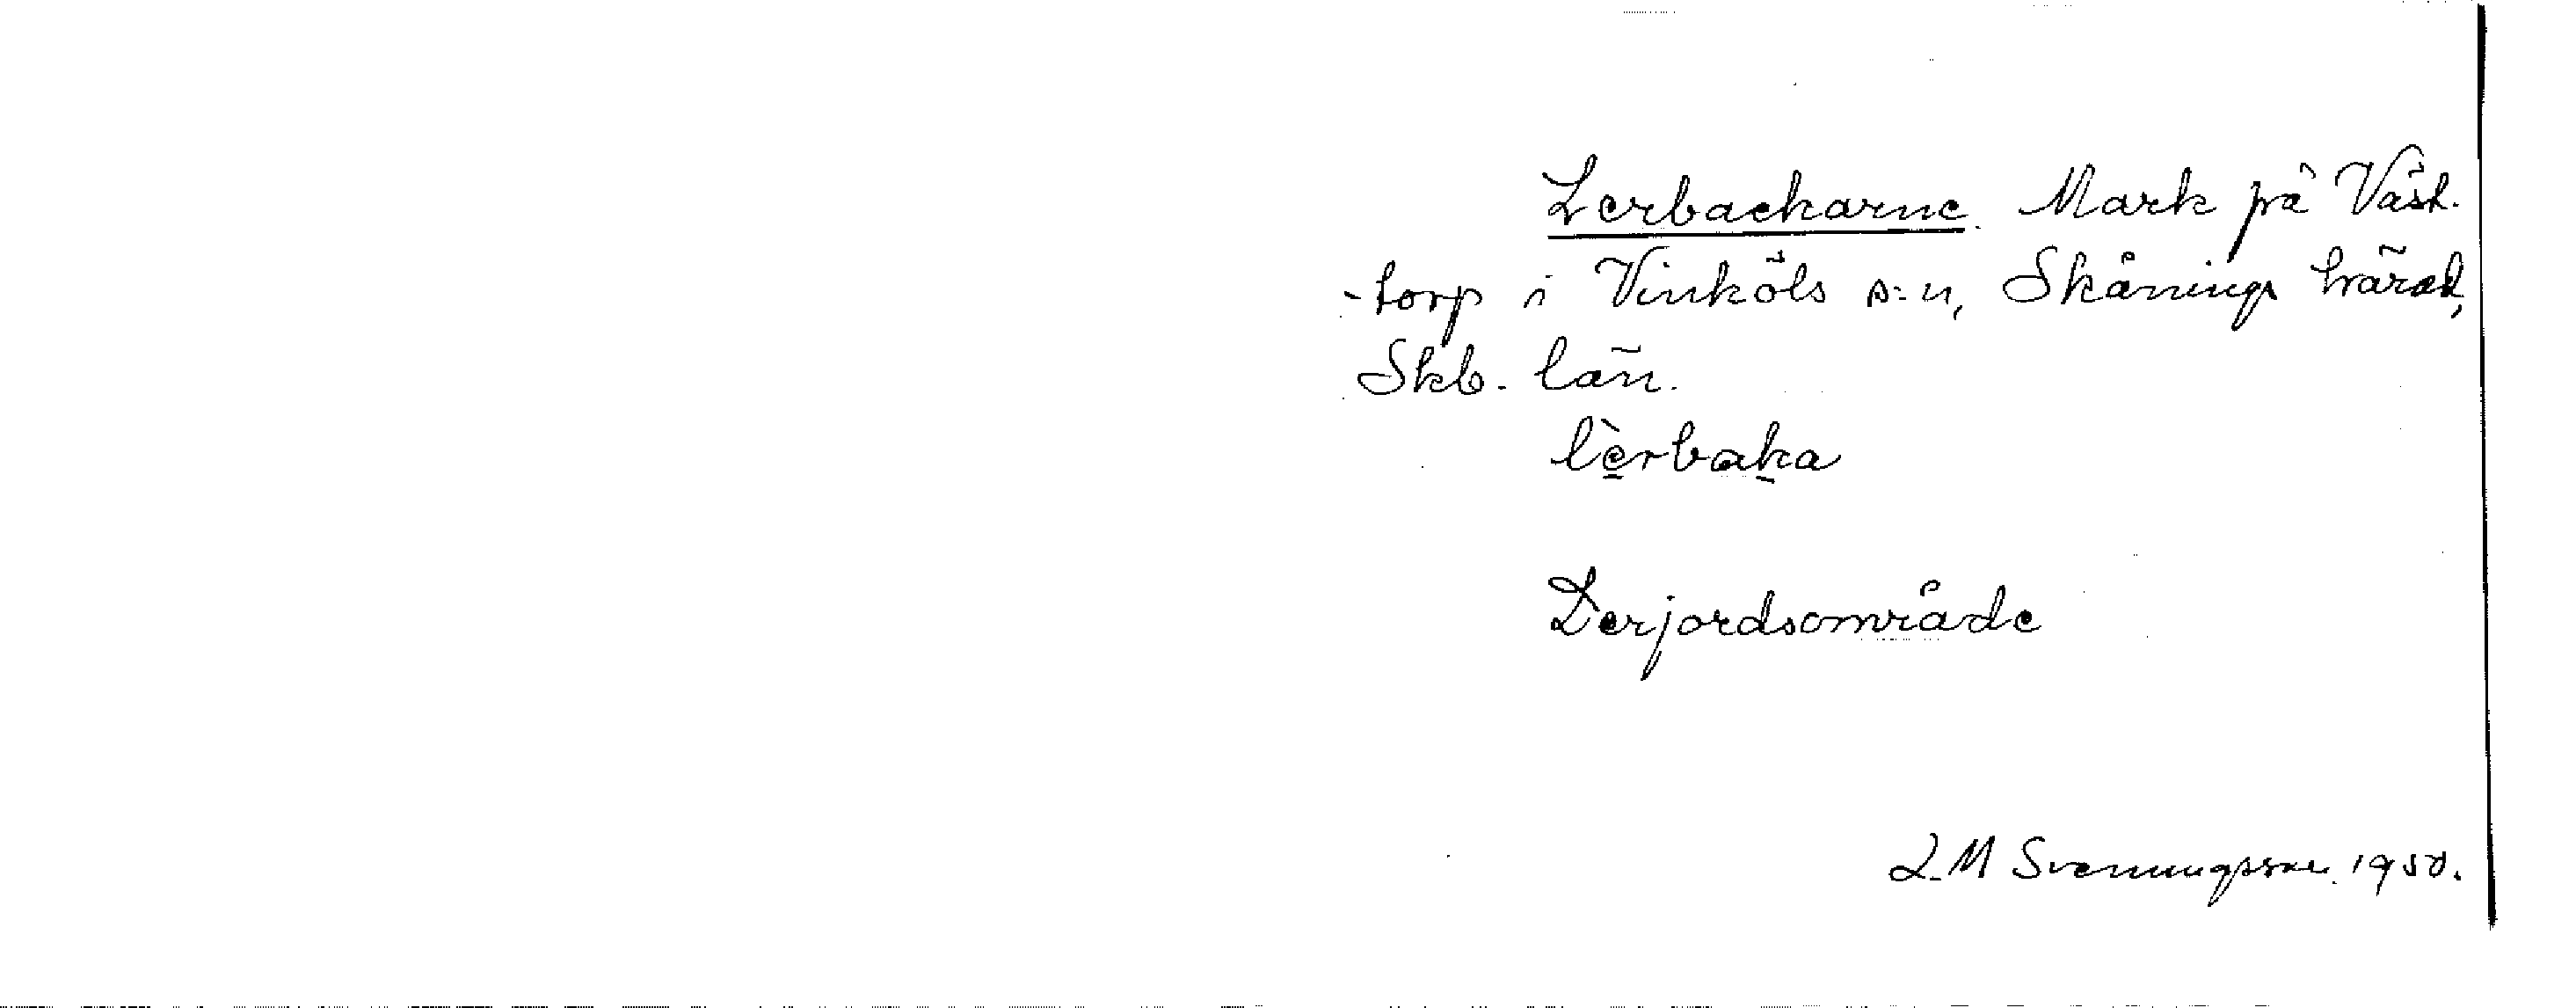 Lerbackarne. Mark på Väst-
-torp i Vinköls s:n, Skånings härad,
Skb. län.
lèrbaka
Lerjordsområde
L.M Svenningsson. 1950.